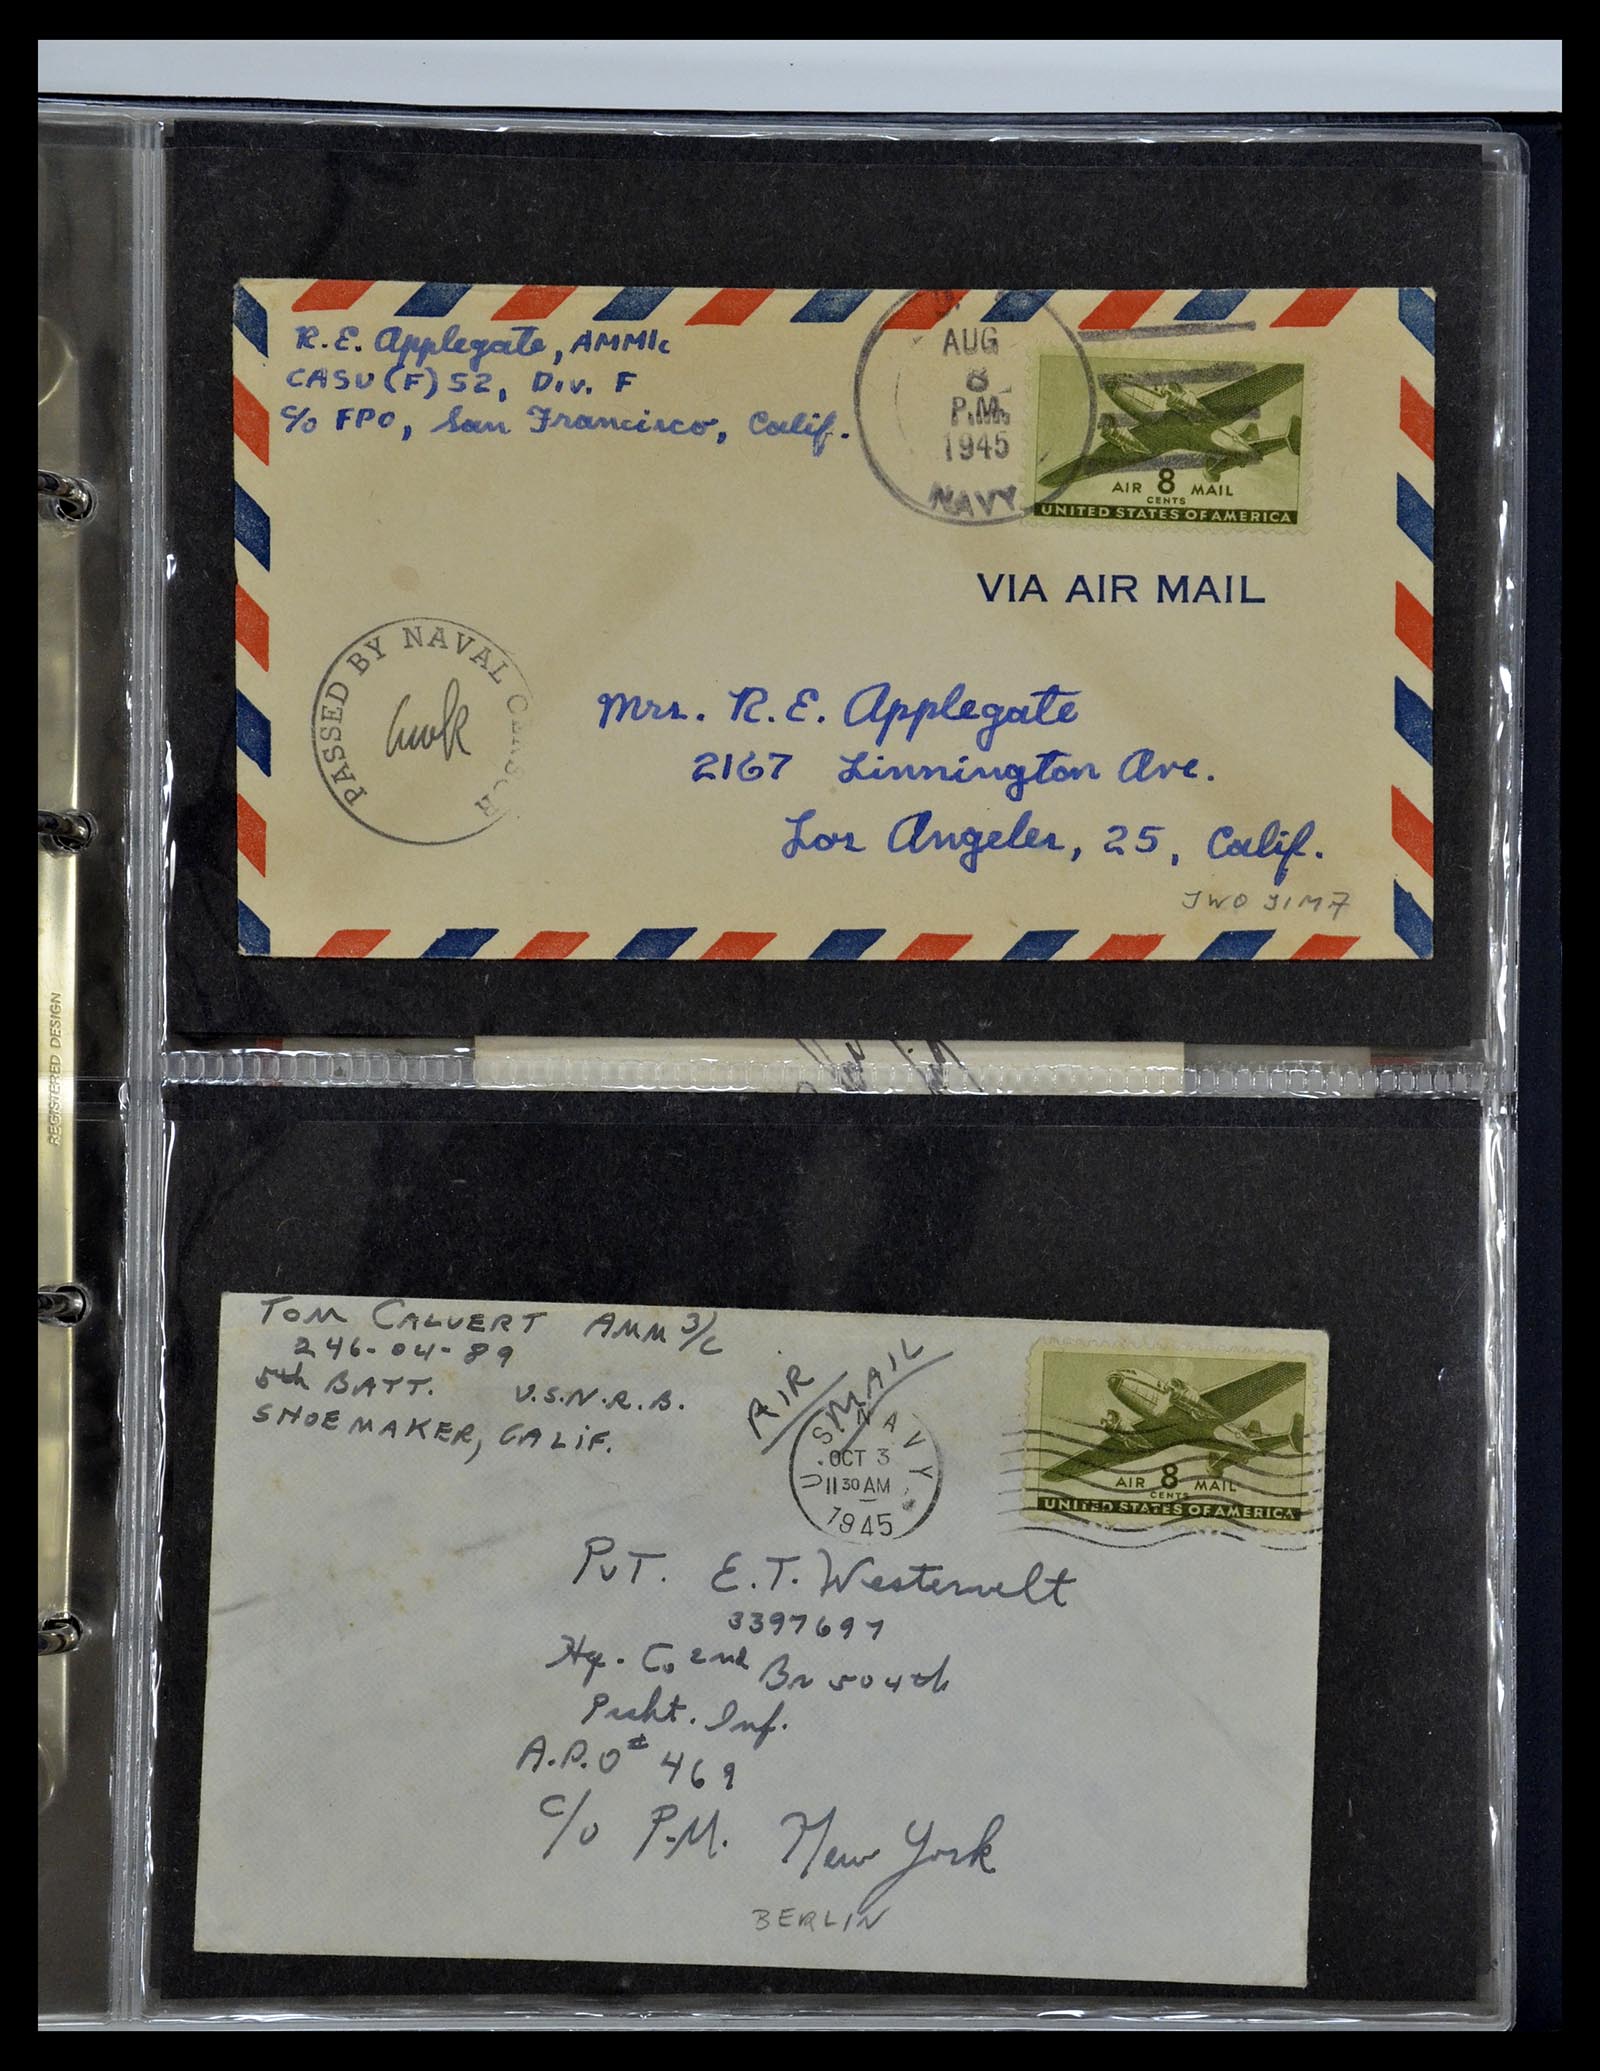 R.E. Applegate, AMM1c
CASU (F) 52, Div. F
c/o FPO, San Francisco, Calif.
AUG
8
P.M.
1945
NAVY
AIR 8 MAIL
CENTS
UNITED STATES OF AMERICA
VIA AIR MAIL
PASSED BY NAVAL CENSOR
Mrs. R.E. Applegate
2167 Linnington Ave.
Los Angeles, 25, Calif.
IWO JIMA
REGISTERED DESIGN
TOM CALVERT AMM 3/C
246-04-89
5th BATT. U.S.N.R.B.
SHOEMAKER, CALIF.
AIR MAIL
U.S. NAVY
OCT 3
11 30 AM
1945
AIR 8 MAIL
CENTS
UNITED STATES OF AMERICA
PVT. E.T. Westervelt
3397697
Hq. Co 2nd Bn 504th
Prcht. Inf.
A.P.O # 469
c/o P.M. New York
BERLIN